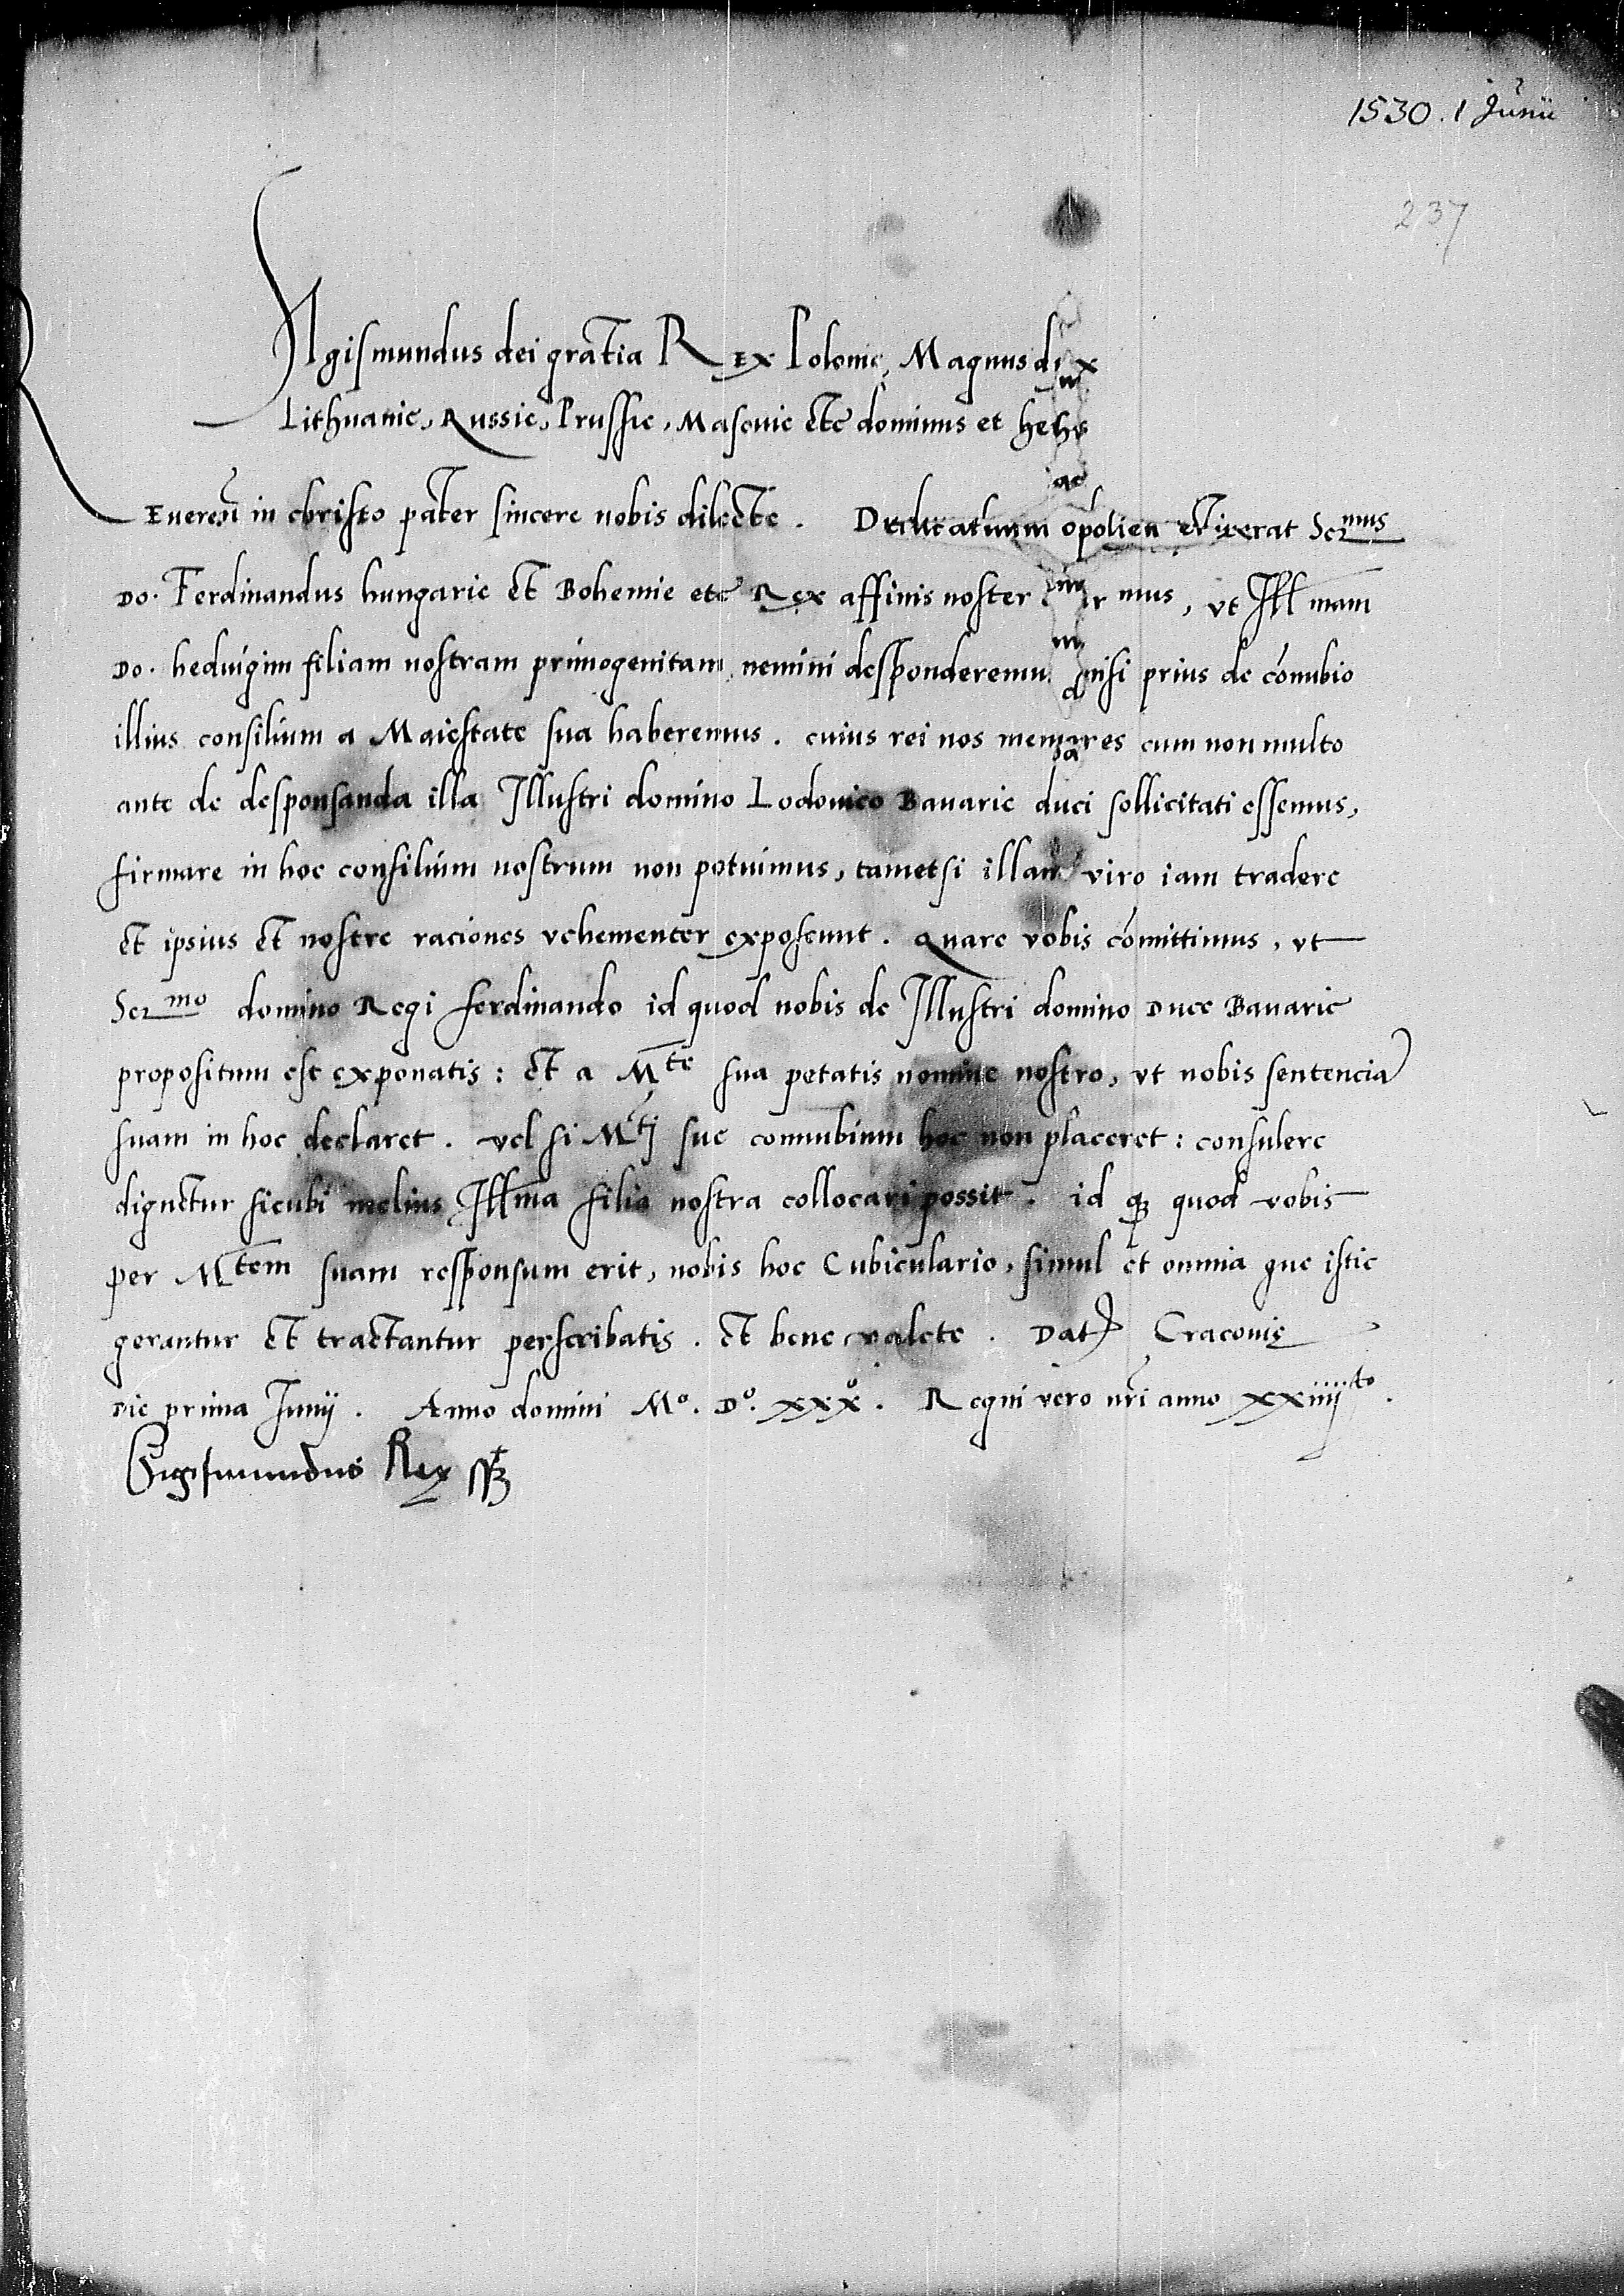 1530. 1 Junii
237
Sigismundus dei gratia Rex Polonie, Magnus dux
Lithuanie, Russie, Prussie, Masouie etc dominus et heres
Reueren in christo pater sincere nobis dilecte. opolien Sermus
Do. Ferdinandus hungarie et Bohemie etc Rex affinis noster mus, vt Illmam
Do. heduigim filiam nostram primogenitam nemini desponderemu nisi prius de conubio
illius consilium a Maiestate sua haberemus. cuius rei nos memores cum non multo
ante de desponsanda illa Illustri domino Lodouico Bauarie duci sollicitati essemus,
firmare in hoc consilium nostrum non potuimus, tametsi illam viro iam tradere
et ipsius et nostre raciones vehementer exposcunt. Quare vobis comittimus, vt
Sermo domino Regi ferdinando id quod nobis de Illustri domino Duce Bauarie
propositum est exponatis: et a Mte sua petatis nomine nostro, vt nobis sentencia
suam in hoc declaret. vel si Mtj sue connubium hoc non placeret: consulere
dignetur sicubi melius Illma filia nostra collocari possit. id q3 quod vobis
per Mtem suam responsum erit, nobis hoc Cubiculario, simul et omnia que istic
gerantur et tractantur perscribatis. et bene valete. Dat Cracouie
Die prima Junij. Anno domini Mo. Do. xxxo. Regni vero nri anno xxiiijto.
Sigismundus Rex sst